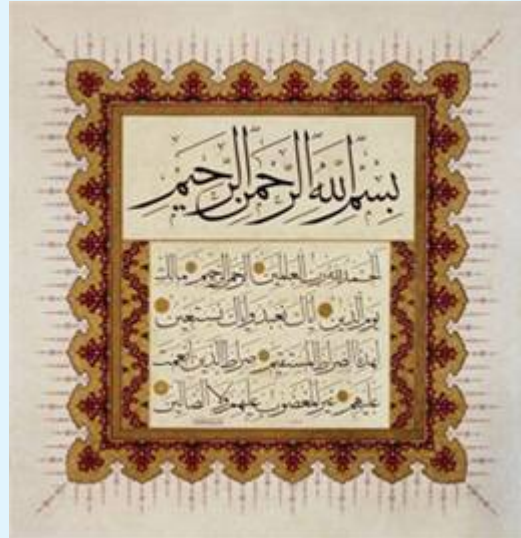 بِسْمِ اللهِ الرَّحْمٰنِ الرَّحِيْمِ
الحمد لله رب العالمين الرحمن الرحيم مالك
يوم الدين إياك نعبد وإياك نستعين
اهدنا الصراط المستقيم صراط الذين أنعمت
عليهم غير المغضوب عليهم ولا الضالين